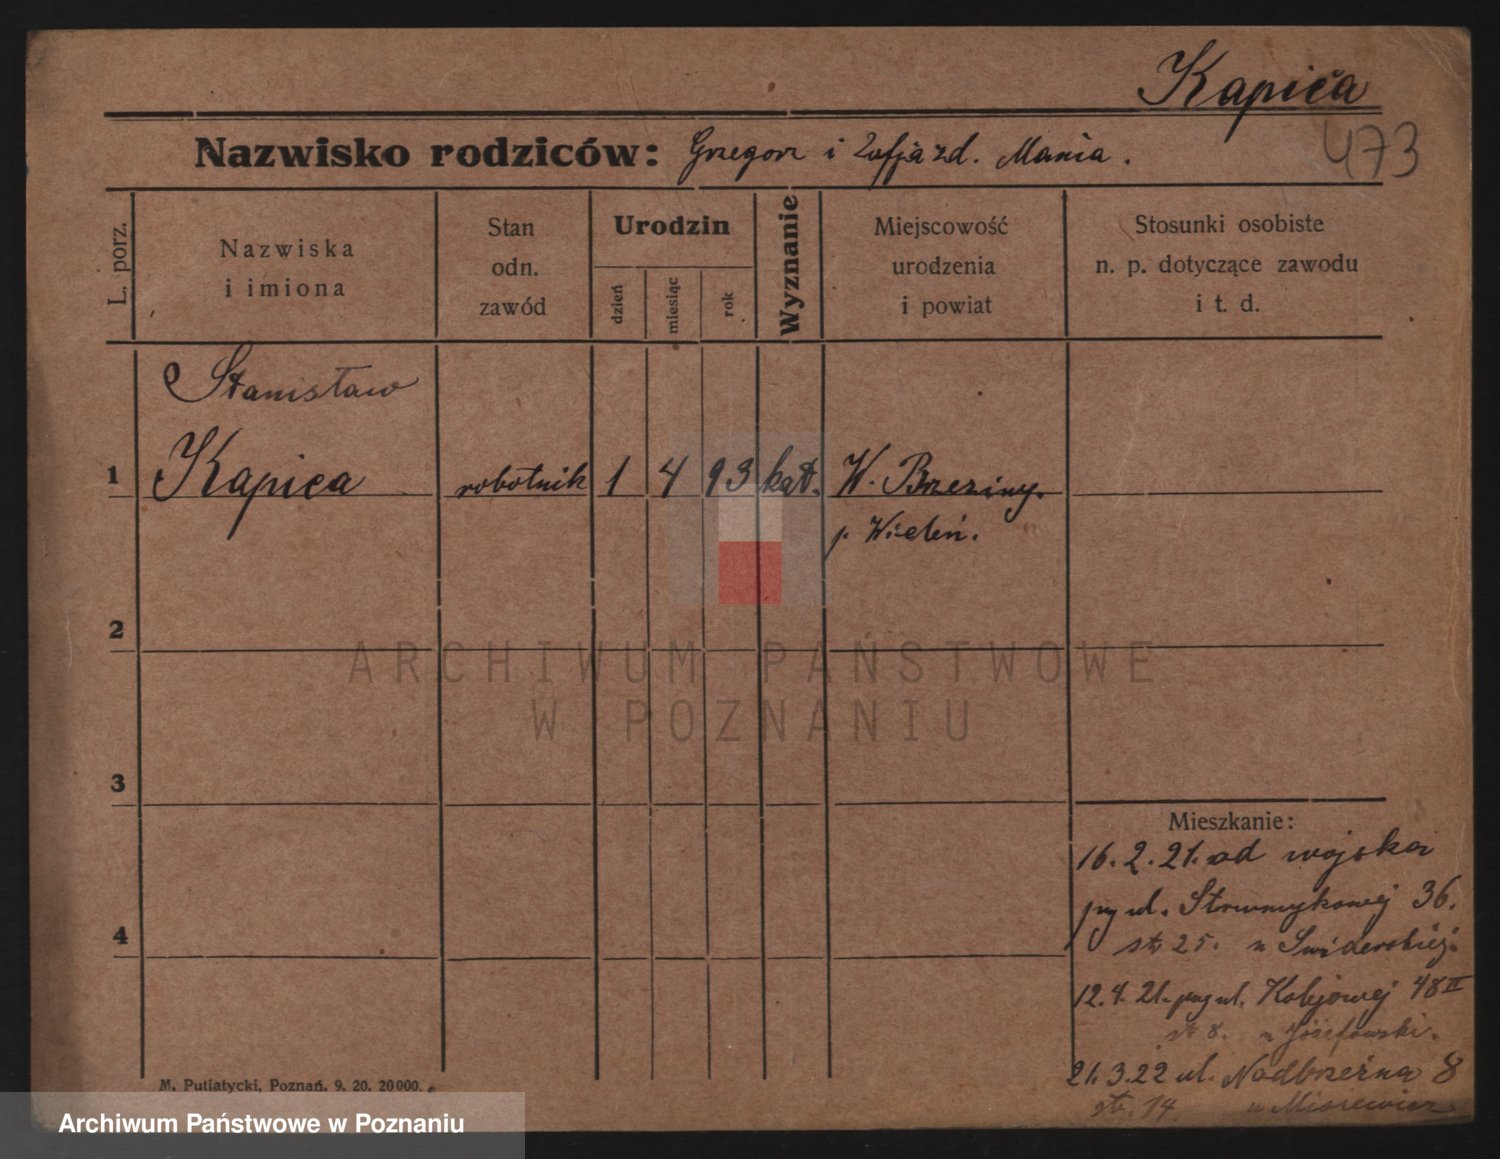 Kapica
473
Nazwisko rodziców: Grzegorz i Zofja zd. Mania.
L. porz.
Nazwiska i imiona
Stan odn. zawód
Urodzin
dzień
miesiąc
rok
Wyznanie
Miejscowość urodzenia i powiat
Stosunki osobiste n. p. dotyczące zawodu i t. d.
Stanisław
1 Kapica robotnik 1 4 93 kat. W. Brzeziny.
p. Wieleń.
2
ARCHIWUM PAŃSTWOWE
W POZNANIU
3
Mieszkanie:
16. 2. 21. od wojska
przy ul. Strumykowej 36.
str 25. u Swiderskiej.
4
12. 4. 21. przy ul. Kolejowej 48 II
str 8. u Józefowski.
21. 3. 22 ul. Nadbrzeżna 8
str. 14. u
M. Putiatycki, Poznań. 9. 20. 20000.
Archiwum Państwowe w Poznaniu